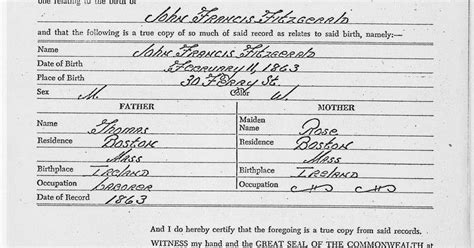 one relating to the birth of
John Francis Fitzgerald
and that the following is a true copy of so much of said record as relates to said birth, namely:—
Name John Francis Fitzgerald
Date of Birth February 11, 1863
Place of Birth 30 Ferry St.
Sex M. Color W.
FATHER MOTHER
Name Thomas Maiden Name Rose
Residence Boston Residence Boston
Mass Mass
Birthplace Ireland Birthplace Ireland
Occupation Laborer Occupation
Date of Record 1863
And I do hereby certify that the foregoing is a true copy from said records.
WITNESS my hand and the GREAT SEAL OF THE COMMONWEALTH